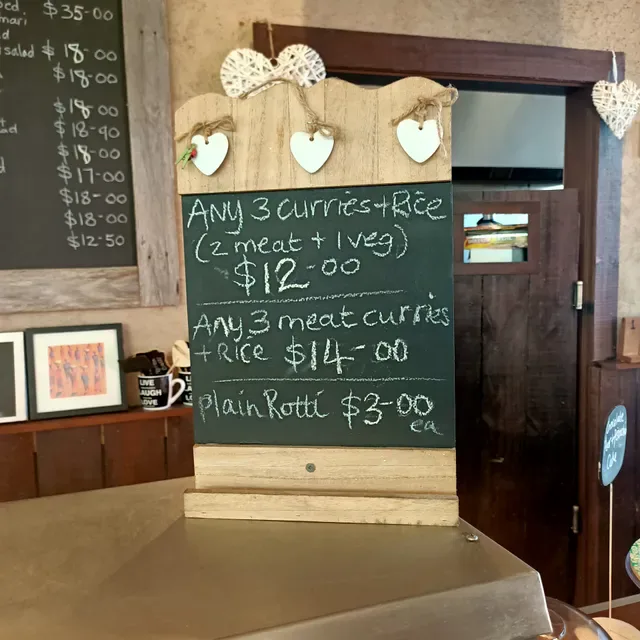 $35-00
mari
salad $18-00
$18-00
$18-00
$18-90
$18-00
$17-00
$18-00
$18-00
$12-50
Any 3 curries+Rice
(2 meat + 1 veg)
$12-00
Any 3 meat curries
+Rice $14-00
plain Rotti $3-00
ea
LIVE
LAUGH
LOVE